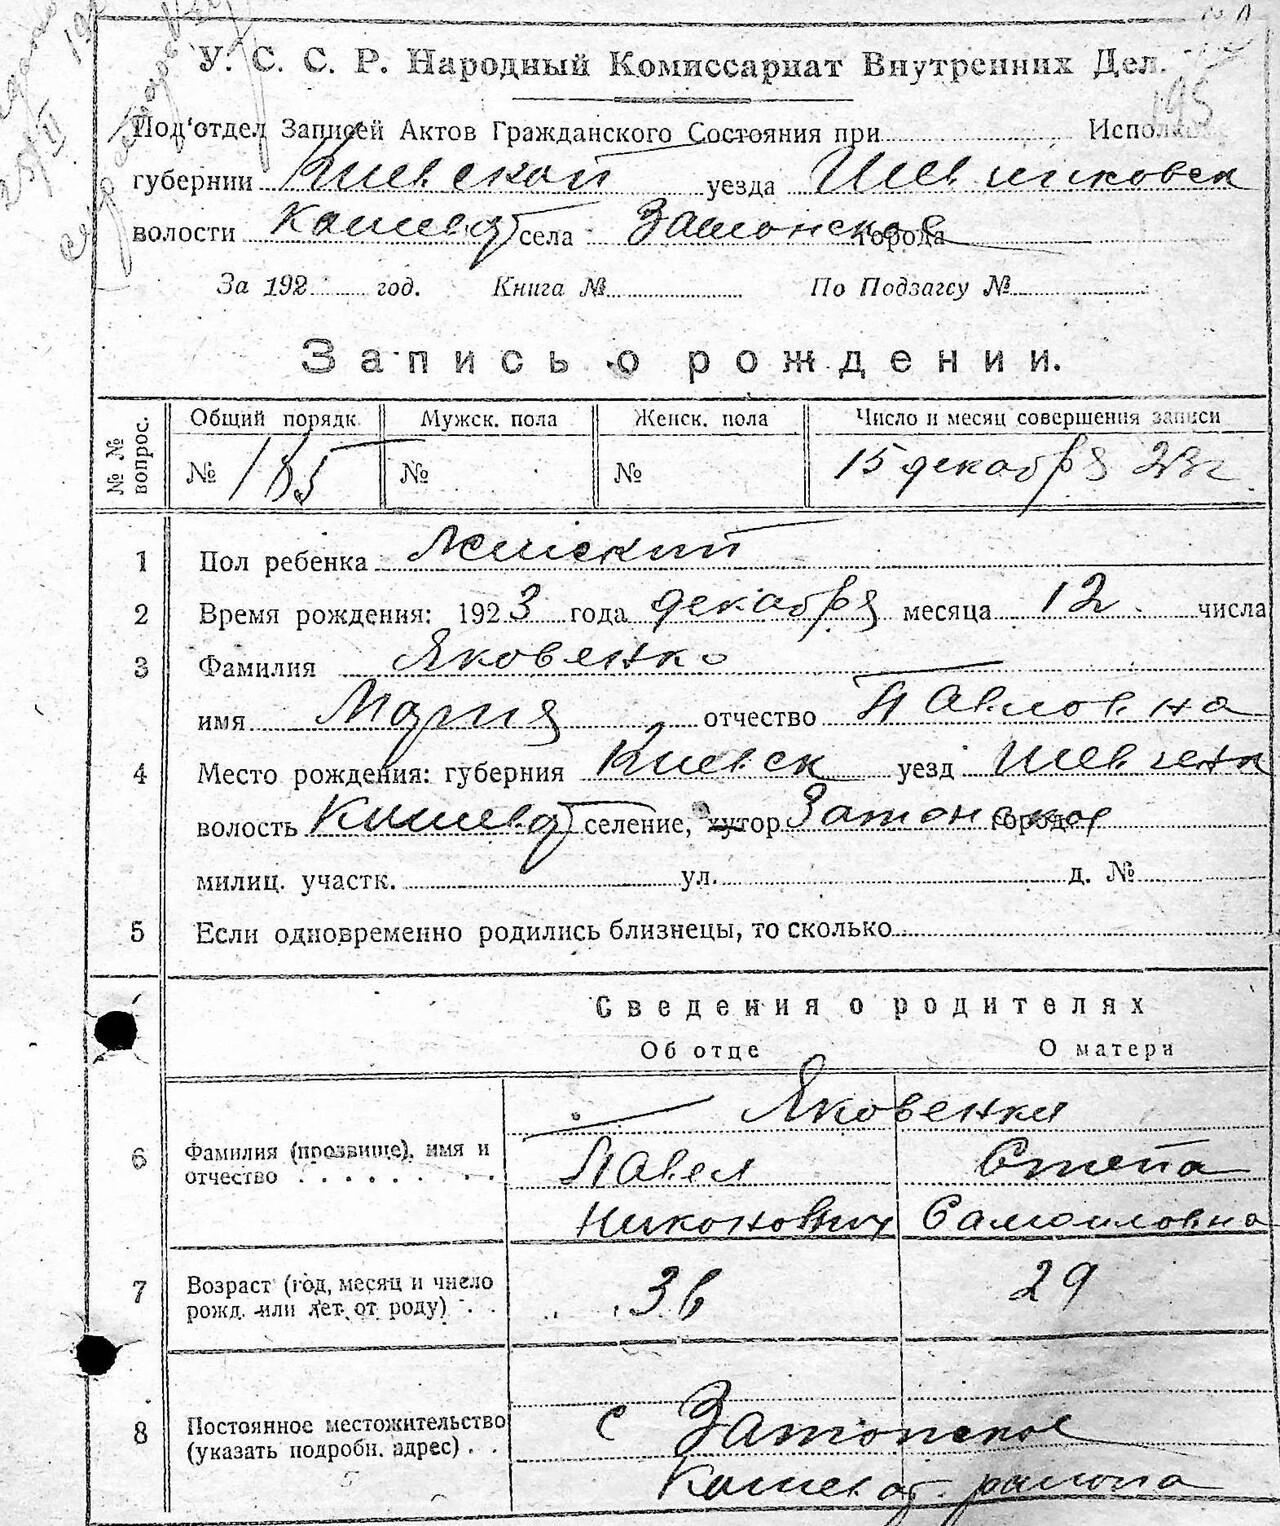 195
У. С. С. Р. Народный Комиссариат Внутренних Дел.
Под'отдел Записей Актов Гражданского Состояния при Исполком
губернии Киевской уезда
волости села Затонское города
За 192 год. Книга № По Подзагсу №
Запись о рождении.
№ № вопрос. Общий порядк. Мужск. пола Женск. пола Число и месяц совершения записи
№ 185 № № 15 декабря 23 г.
1 Пол ребенка Женский
2 Время рождения: 1923 года декабря месяца 12 числа
3 Фамилия Яковенко
имя Мария отчество Павловна
4 Место рождения: губерния Киевск уезд Шевченк
волость селение, хутор Затонское города
милиц. участк. ул. д. №
5 Если одновременно родились близнецы, то сколько
Сведения о родителях
Об отце О матери
Яковенки
6 Фамилия (прозвище), имя и Павел Степа
отчество Никонович Самоиловна
7 Возраст (год, месяц и число 36 29
рожд. или лет от роду)
8 Постоянное местожительство с Затонское
(указать подробн. адрес) района